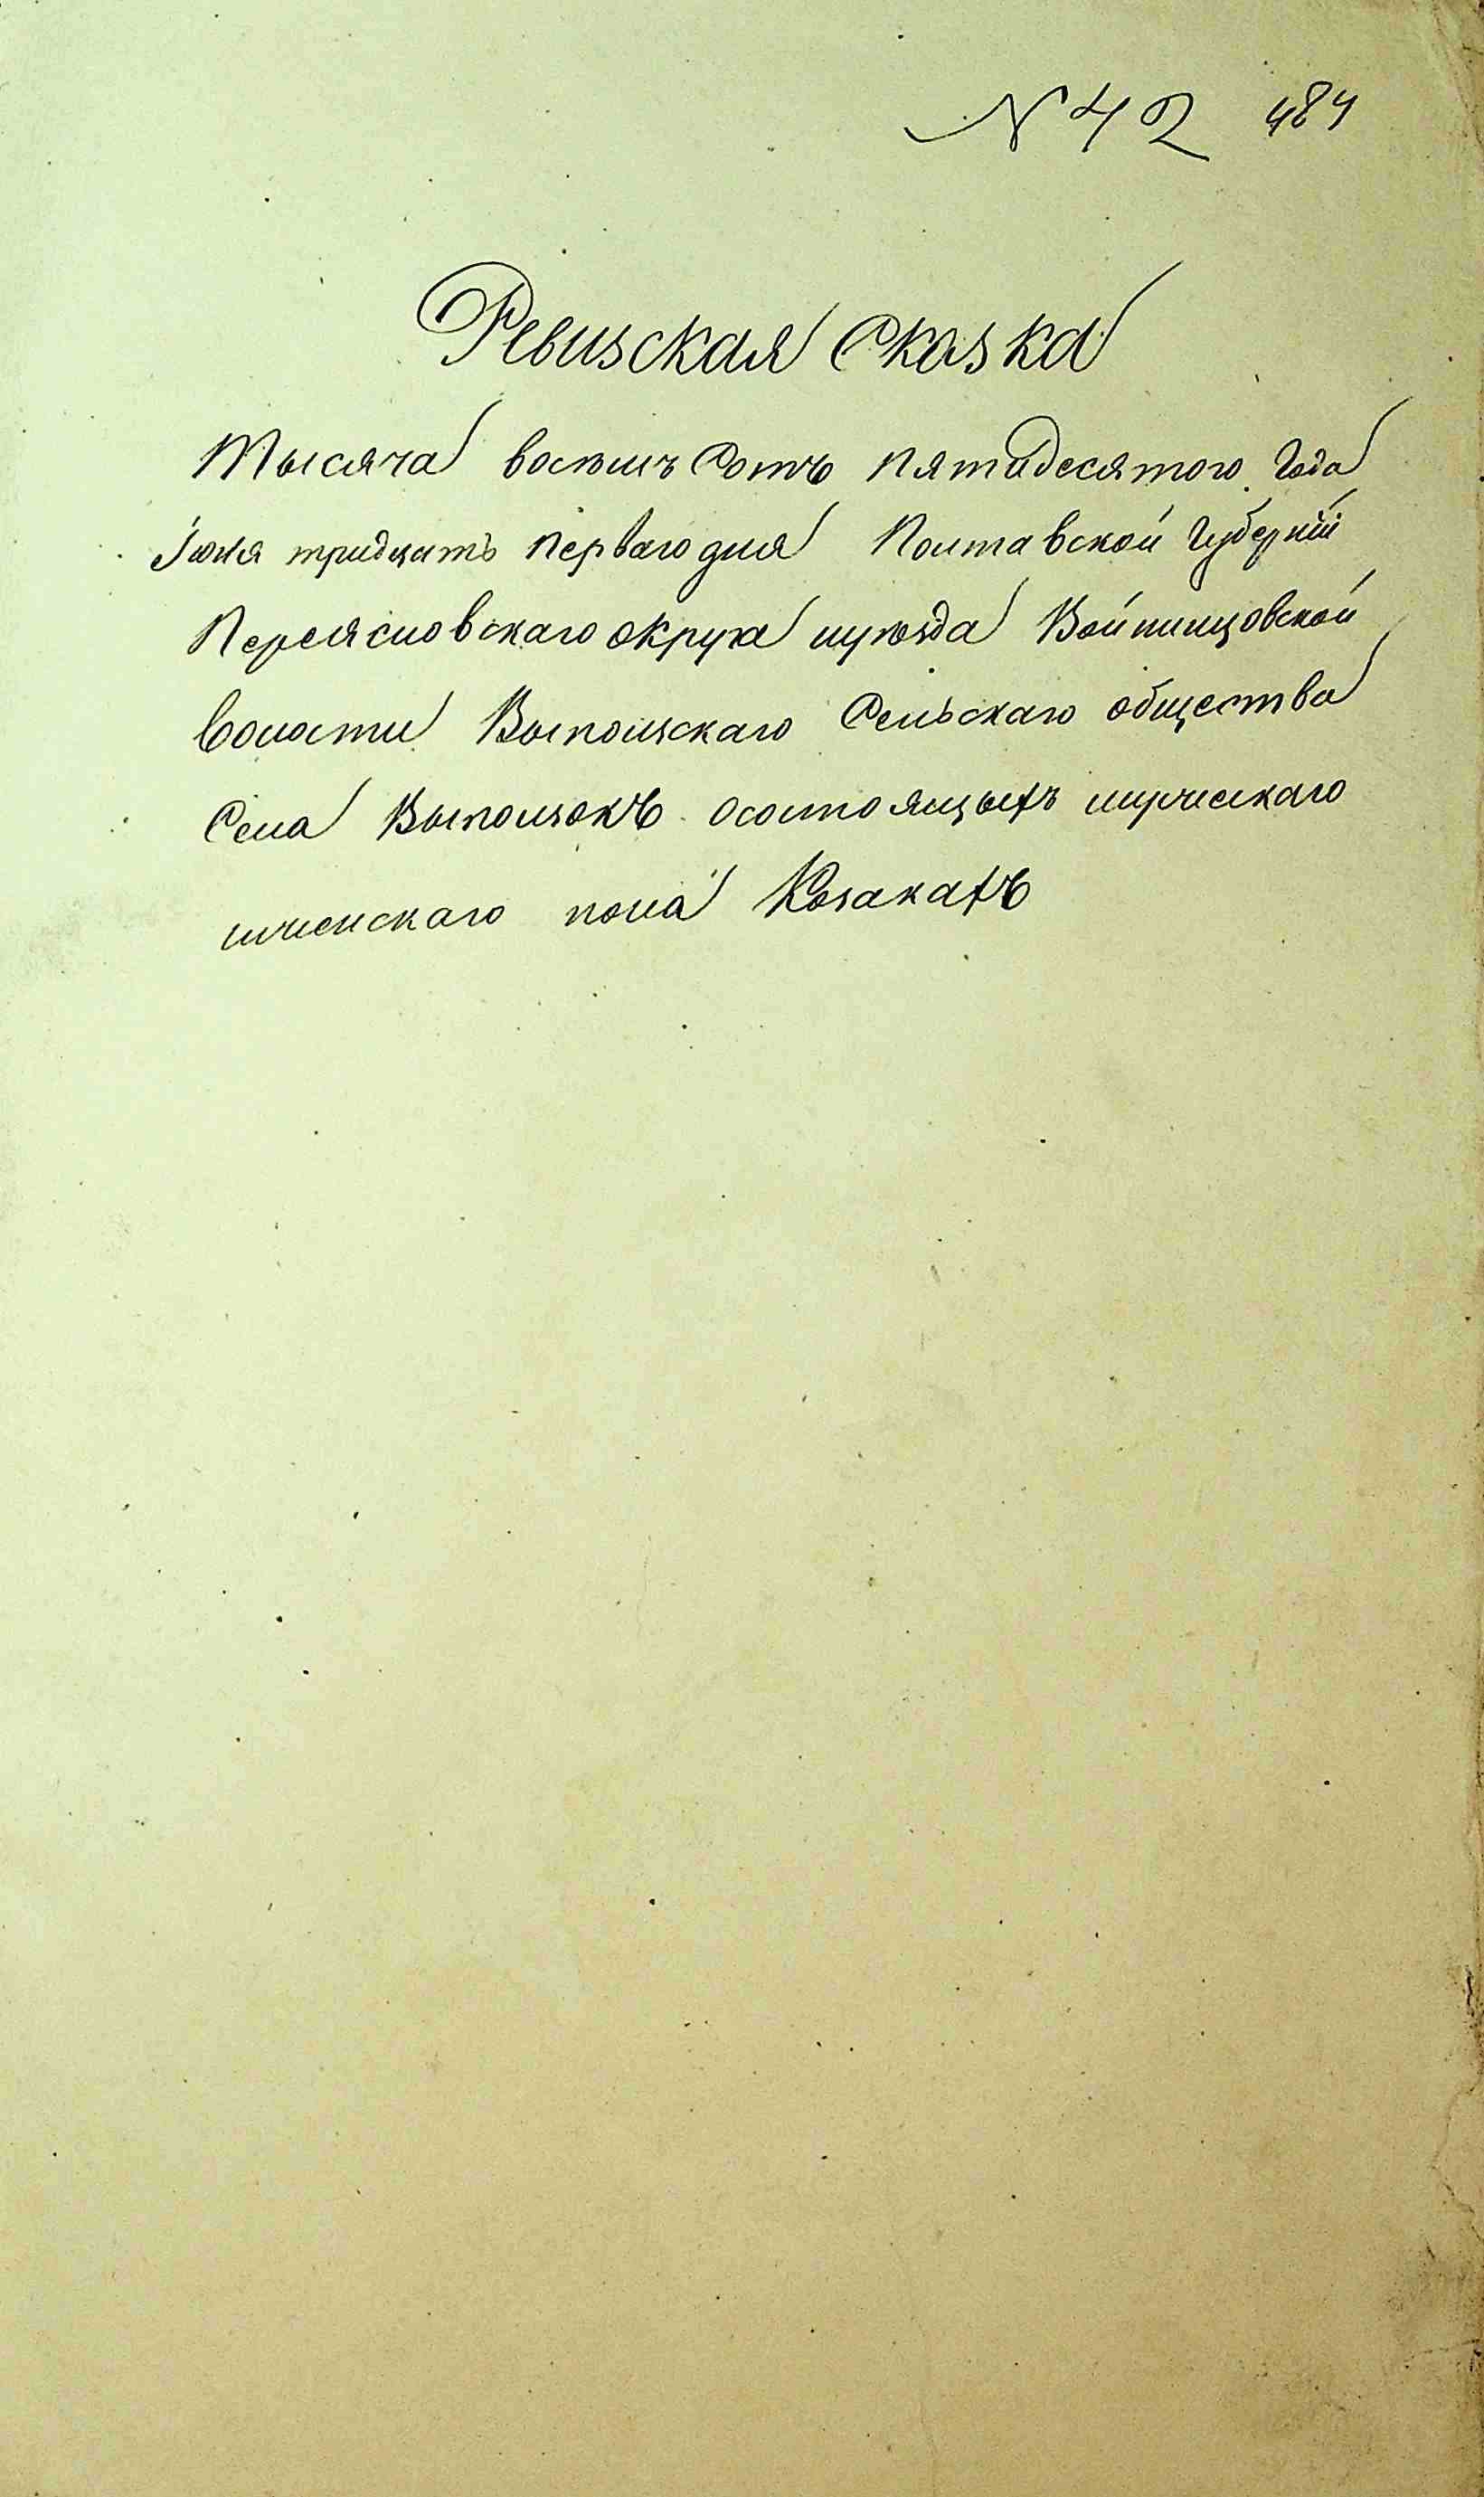 № 42 484
Ревизская Сказка
Тысяча восемъ Сотъ пятидесятого Года
Июля тридцать перваго дня Полтавской Губерній
Переясловскаго округа и уѣзда Войтищовской
волости Выползскаго Сельскаго общества
Села Выползокъ осостоящыхъ мужескаго
иженскаго пола Козакахъ